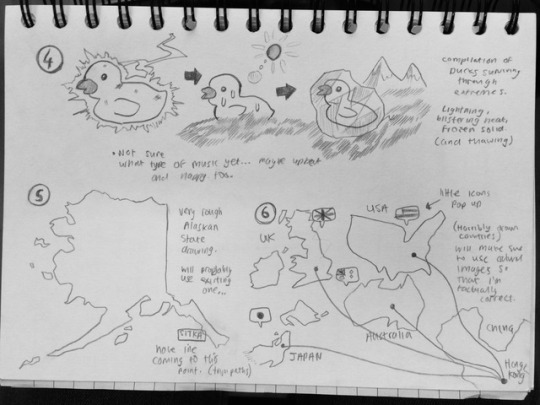 4
compilation of
Ducks surviving
through
extremes.
Lightning,
blistering heat,
frozen solid.
(and thawing)
• Not sure
what type of music yet... maybe upbeat
and happy too.
5
very rough
Alaskan
State
drawing.
will probably
use existing
one...
SITKA
have line
coming to this
point.
6
UK
USA
little icons
Pop up
(Horribly drawn
countries)
will make sure
to use actual
images so
that I'm
factually
correct.
Australia
China
JAPAN
Hong
Kong